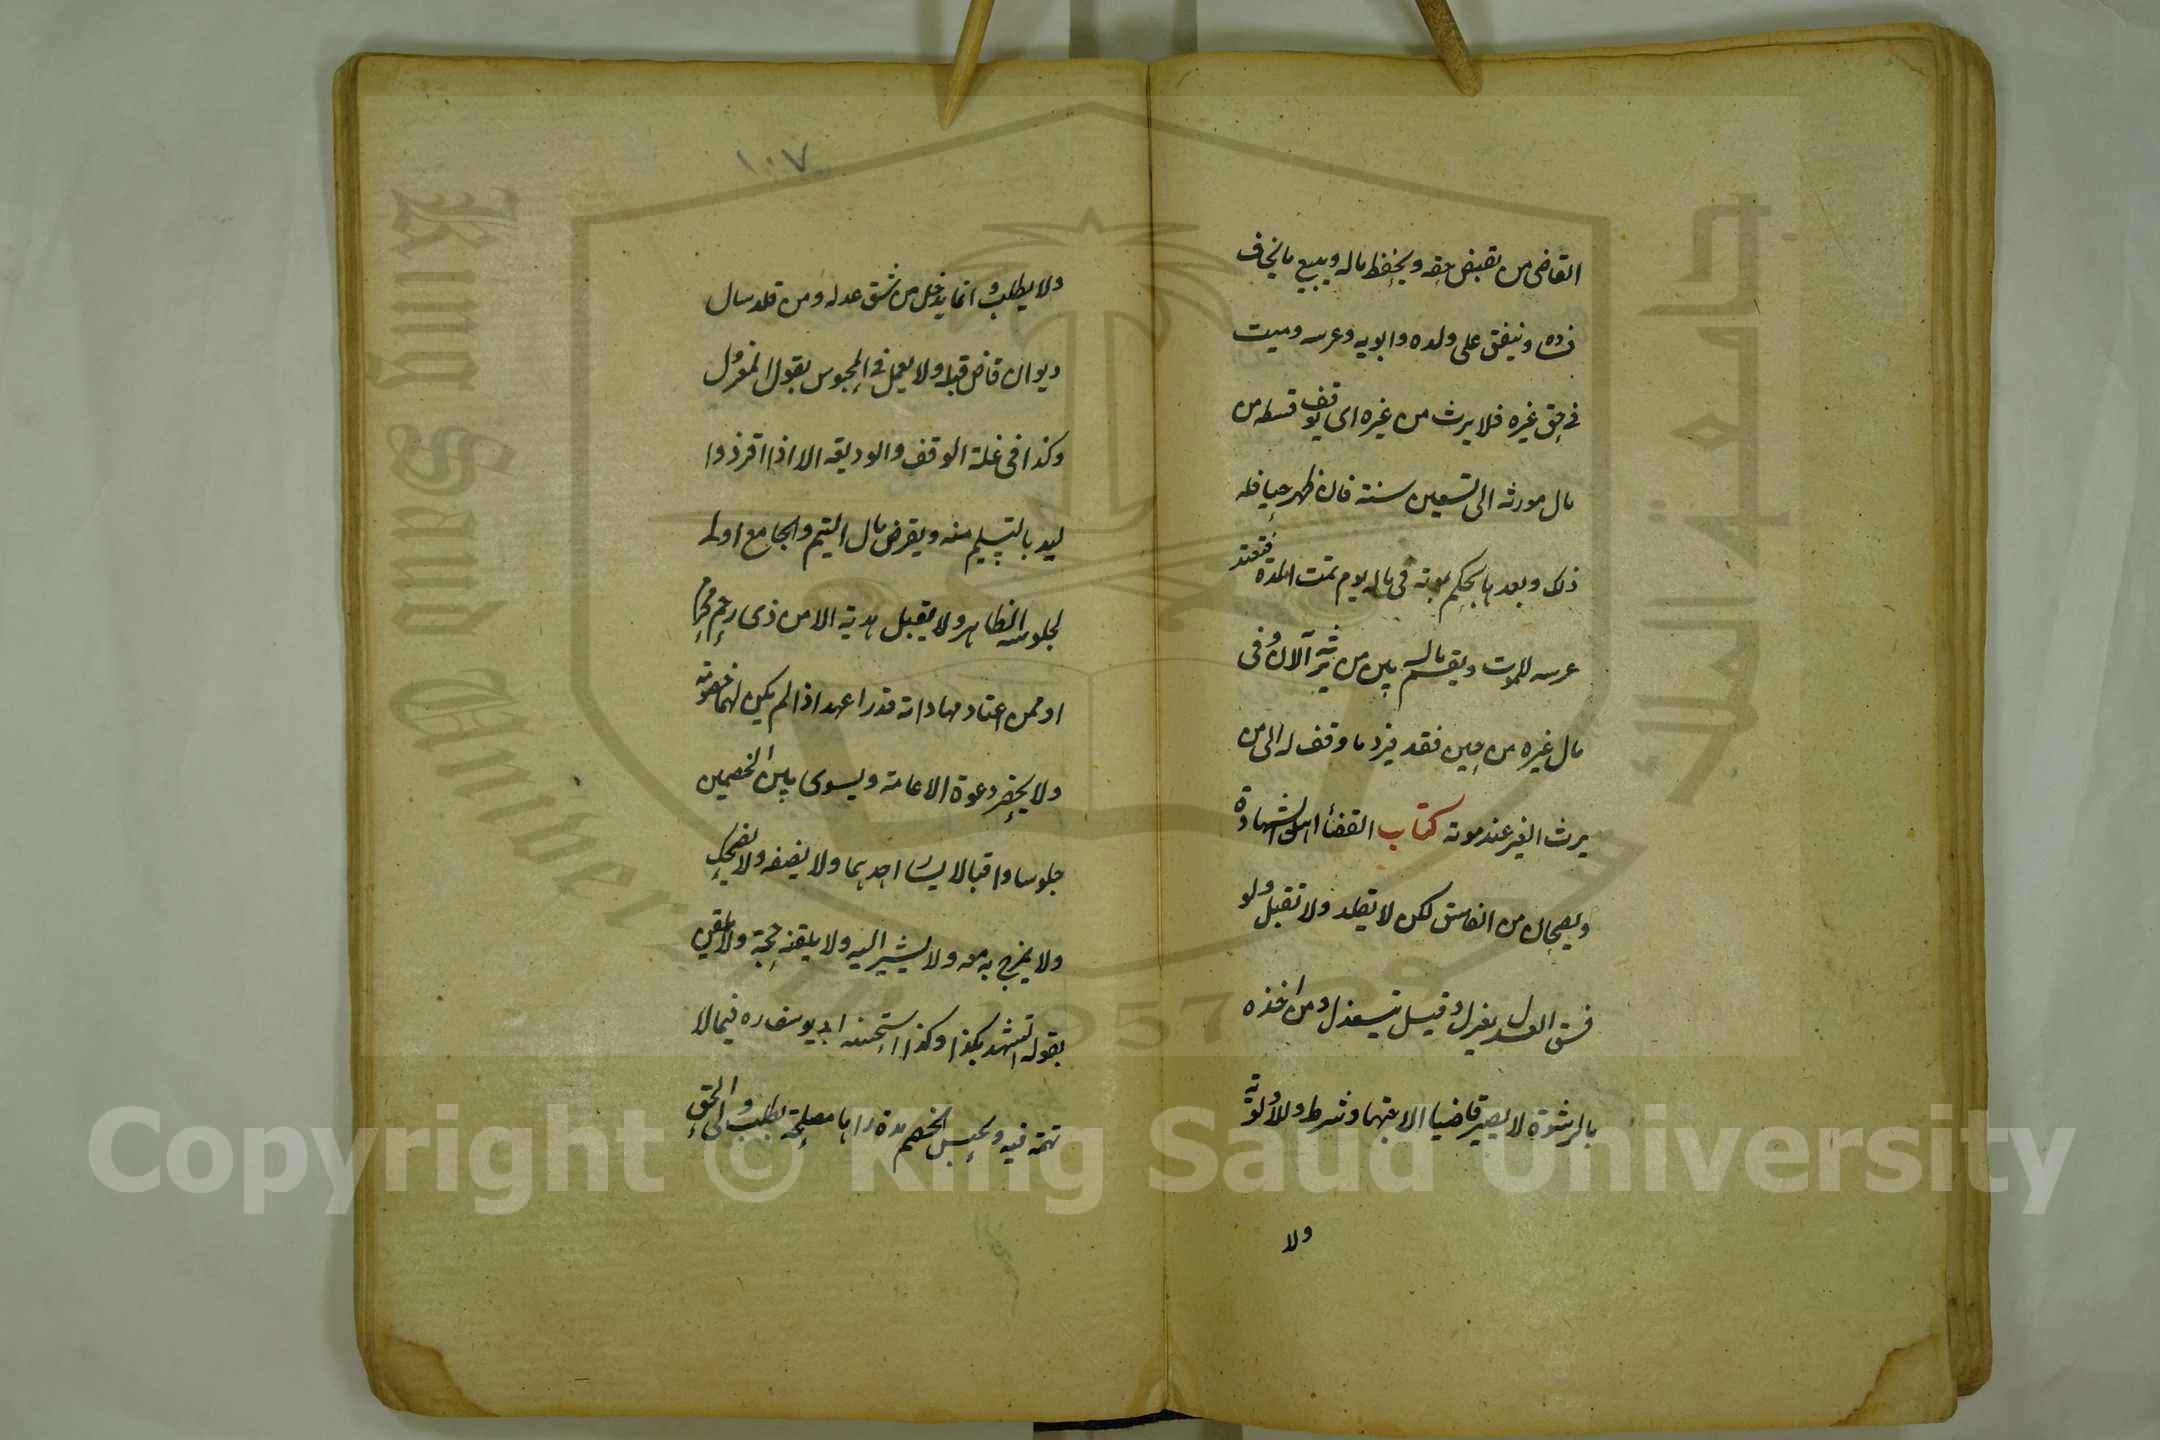 القاضى من يقبض حقه ويحفظ ماله ويبيع ما يخاف
فساده وينفق على ولده وابويه وعرسه وميت
فى حق غيره فلا يرث من غيره اى يوقف قسطه من
مال مورثه الى تسعين سنة فان ظهر حيا فله
ذلك وبعدها يحكم بموته فى ماله يوم تمت المدة فتعتد
عرسه للموت ويقسم ماله بين من يرثه الآن وفى
مال غيره من حين فقد فيرد ما وقف له الى من
يرث الغير عند موته كتاب القضاء اهله اهل الشهادة
ويصحان من الفاسق لكن لا يقلد ولا تقبل ولو
فسق العدل يعزل وقيل ينعزل ومن اخذه
بالرشوة لا يصير قاضيا الاجتهاد شرط للاولوية
ولا
١٠٧
ولا يطلب وانما يدخل من يثق عدله ومن قلد سال
ديوان قاض قبله ولا يعمل فى المحبوس بقول المعزول
وكذا فى غلة الوقف والوديعه الا اذا اقر ذوا
ليد بالتسليم منه ويقرض مال اليتيم والجامع اولى
لجلوسه الظاهر ولا يقبل هدية الا من ذى رحم محرم
او ممن اعتاد مهاداته قدرا عهد اذا لم يكن لهما خصومة
ولا يحضر دعوة الا عامة ويسوى بين الخصمين
جلوسا واقبالا لا يسار احدهما ولا يضفه ولا يضحك
ولا يمزح به معه ولا يشير اليه ولا يلقنه حجة ولا يلقن
بقوله اتشهد بكذا وكذا استحسنه ابو يوسف ره فيما لا
تهمة فيه ويحبس الخصم مدة راها مصلحة بطلب ولى الحق
King Saud University
جامعة الملك سعود
1957
Copyright © King Saud University